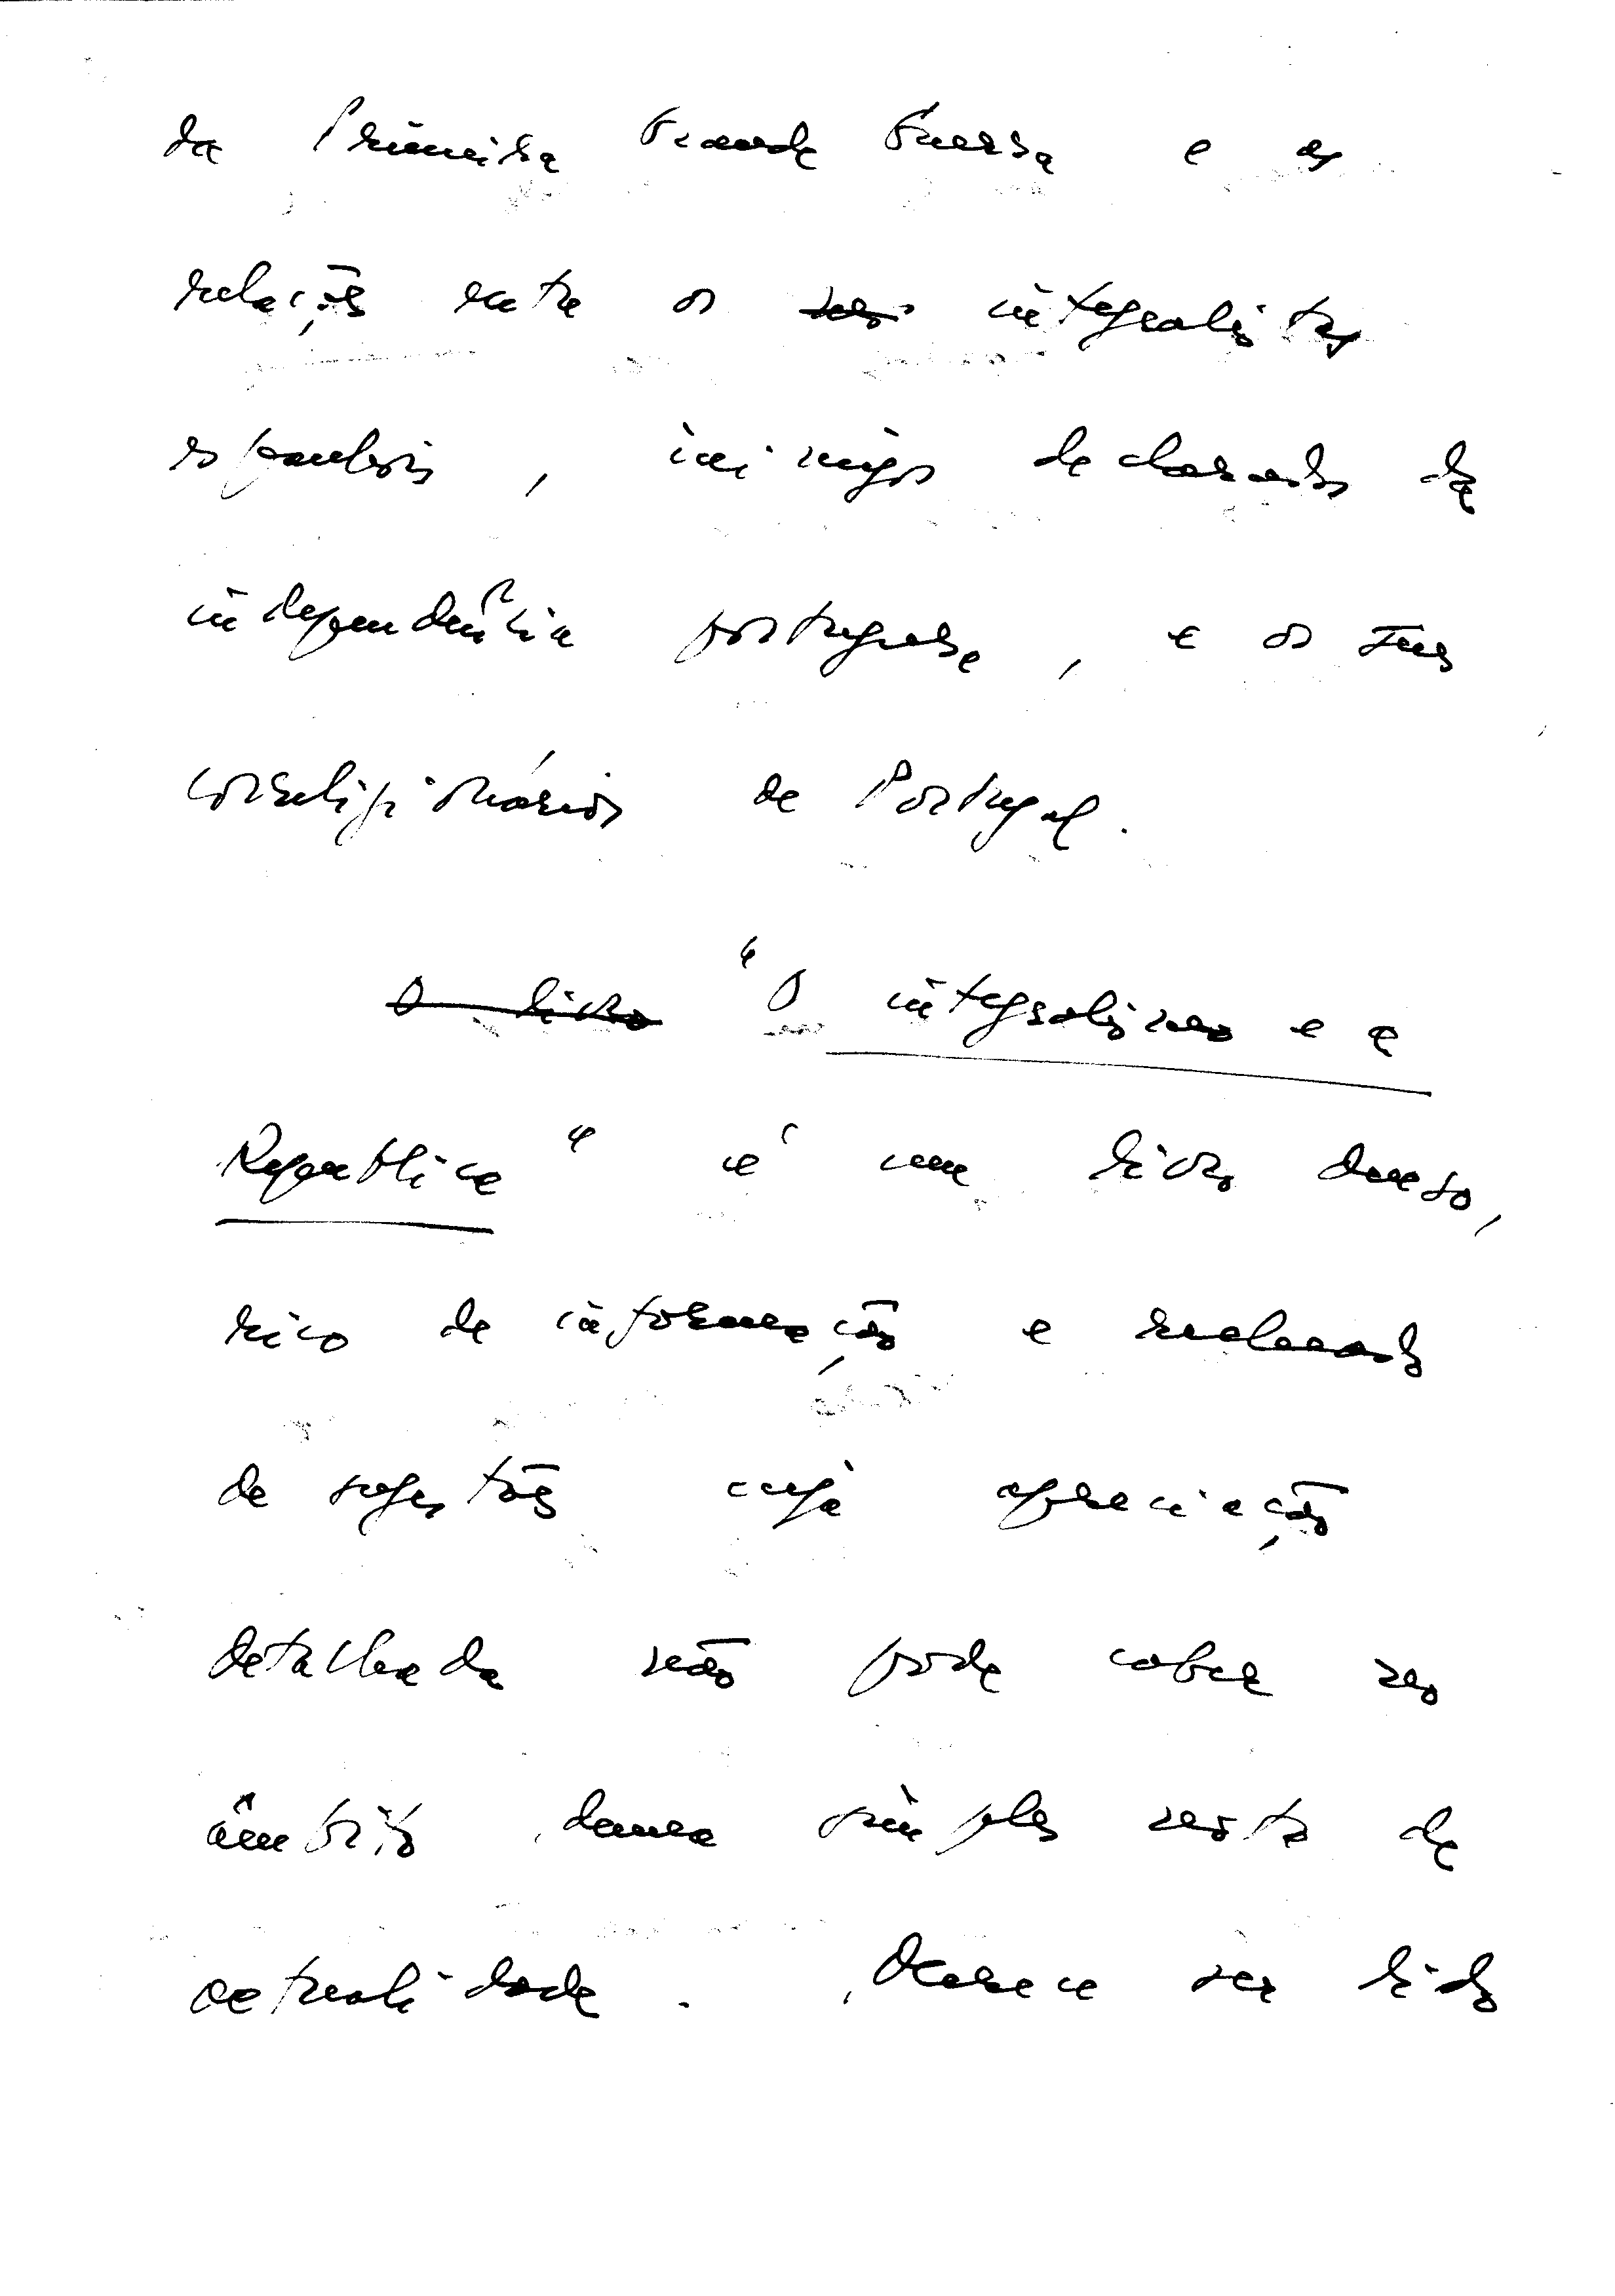 da Primeira Grande Guerra e as
relações entre os integralistas
espanhóis, inimigos declarados da
independência portuguesa, e os seus
correligionários de Portugal.
O livro "O integralismo e a
República" é um livro denso,
rico de informação e
de sugestões cuja apreciação
detalhada não pode caber no
âmbito duma simples nota de
actualidade. Merece ser lido